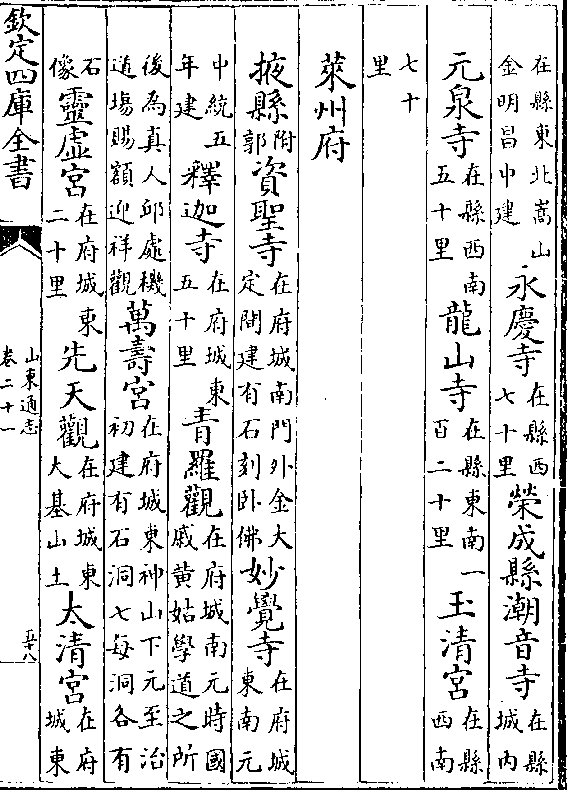 在縣東北嵩山
金明昌中建
永慶寺
在縣西
七十里
榮成縣潮音寺
在縣
城内
元泉寺
在縣西南
五十里
龍山寺
在縣東南一
百二十里
玉清宮
在縣
西南
七十
里
萊州府
掖縣
附
郭
資聖寺
在府城南門外金大
定間建有石刻卧佛
妙覺寺
在府城
東南元
中統五
年建
釋迦寺
在府城東
五十里
青羅觀
在府城南元時國
戚黄姑學道之所
後為真人邱處機
道場賜額迎祥觀
萬壽宮
在府城東神山下元至治
初建有石洞七每洞各有
石
像
靈虚宮
在府城東
二十里
先天觀
在府城東
大基山土
太清宮
在府
城東
欽定四庫全書
山東通志
卷二十一
五十八